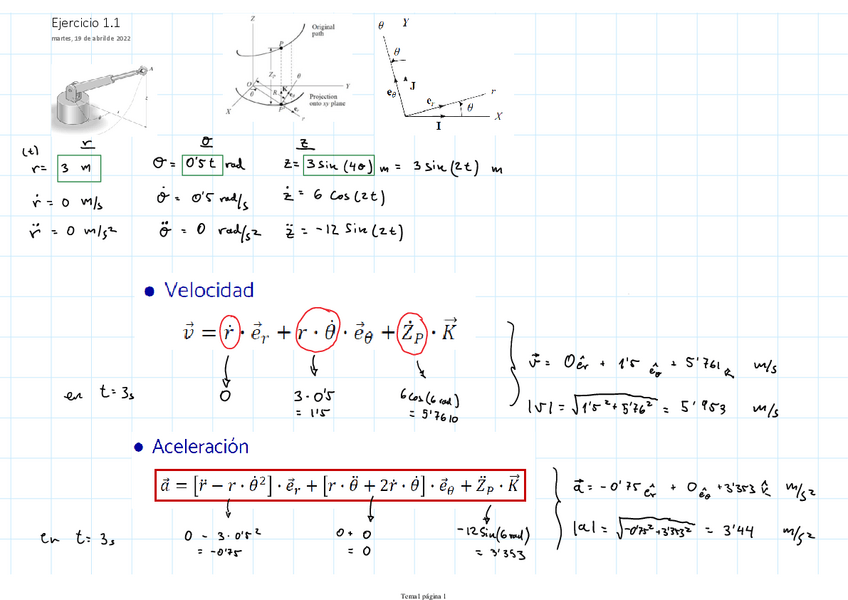 Ejercicio 1.1
martes, 19 de abril de 2022
Z
Original path
P
Z_P
O
θ
R
Y
X
r
Projection onto xy plane
θ Y
θ
J
e_θ
e_r
r
θ
X
I
(t) r θ z
r = 3 m θ = 0'5 t rad z = 3 sin (4θ) m = 3 sin (2t) m
ṙ = 0 m/s θ̇ = 0'5 rad/s ż = 6 cos (2t)
r̈ = 0 m/s² θ̈ = 0 rad/s² z̈ = -12 sin (2t)
• Velocidad
v⃗ = ṙ · e⃗_r + r · θ̇ · e⃗_θ + Ż_P · K⃗
en t = 3s 0 3 · 0'5 = 1'5 6 cos (6 rad) = 5'7610
v⃗ = 0 ê_r + 1'5 ê_θ + 5'761 k̂ m/s
|v| = √(1'5² + 5'76²) = 5'953 m/s
• Aceleración
a⃗ = [r̈ − r · θ̇²] · e⃗_r + [r · θ̈ + 2ṙ · θ̇] · e⃗_θ + Z̈_P · K⃗
en t = 3s 0 - 3 · 0'5² = -0'75 0 + 0 = 0 -12 sin (6 rad) = 3'353
a⃗ = -0'75 ê_r + 0 ê_θ + 3'353 k̂ m/s²
|a| = √(-0'75² + 3'353²) = 3'44 m/s²
Tema1 página 1